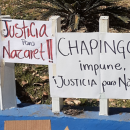 ¡Justicia
Para
Nazaret!!
CHAPINGO
impune,
¡JUSTICIA para Na